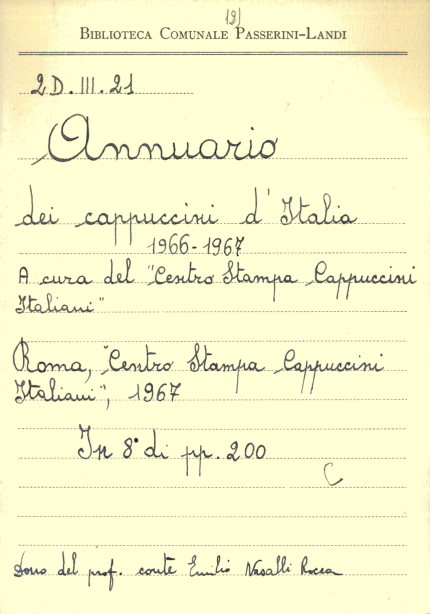 19)
BIBLIOTECA COMUNALE PASSERINI-LANDI
2D.III.21
Annuario
dei cappuccini d'Italia
1966-1967
A cura del "Centro Stampa Cappuccini
Italiani"
Roma, "Centro Stampa Cappuccini
Italiani", 1967
In 8° di pp. 200
C
Dono del prof. conte Emilio Nasalli Rocca